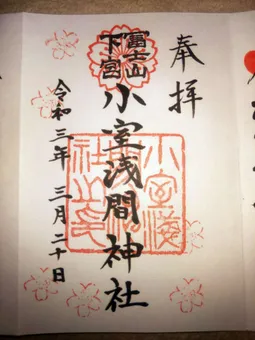 奉拝
富士山
下宮
小室浅間神社
小室浅
間神
社之印
令和三年 三月二十日